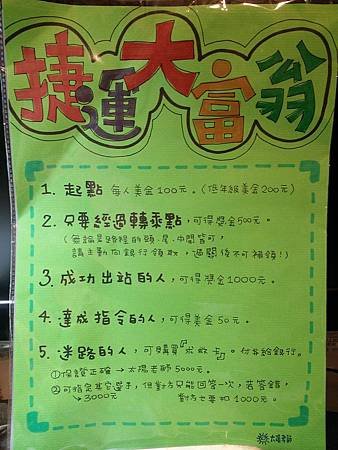 捷運大富翁
1. 起點 每人美金100元。(低年級美金200元)
2. 只要經過轉乘點,可得獎金500元。
(無論是路程的頭.尾.中間皆可,
請主動向銀行領取,過關後不可補領!)
3. 成功出站的人,可得獎金1000元。
4. 達成指令的人,可得美金50元。
5. 迷路的人,可購買『求救卡』。付給銀行。
①保證正確→太陽老師5000元。
②可指定其它選手,但對方只能回答一次,若答錯,
→3000元 對方也要扣1000元。
太陽老師